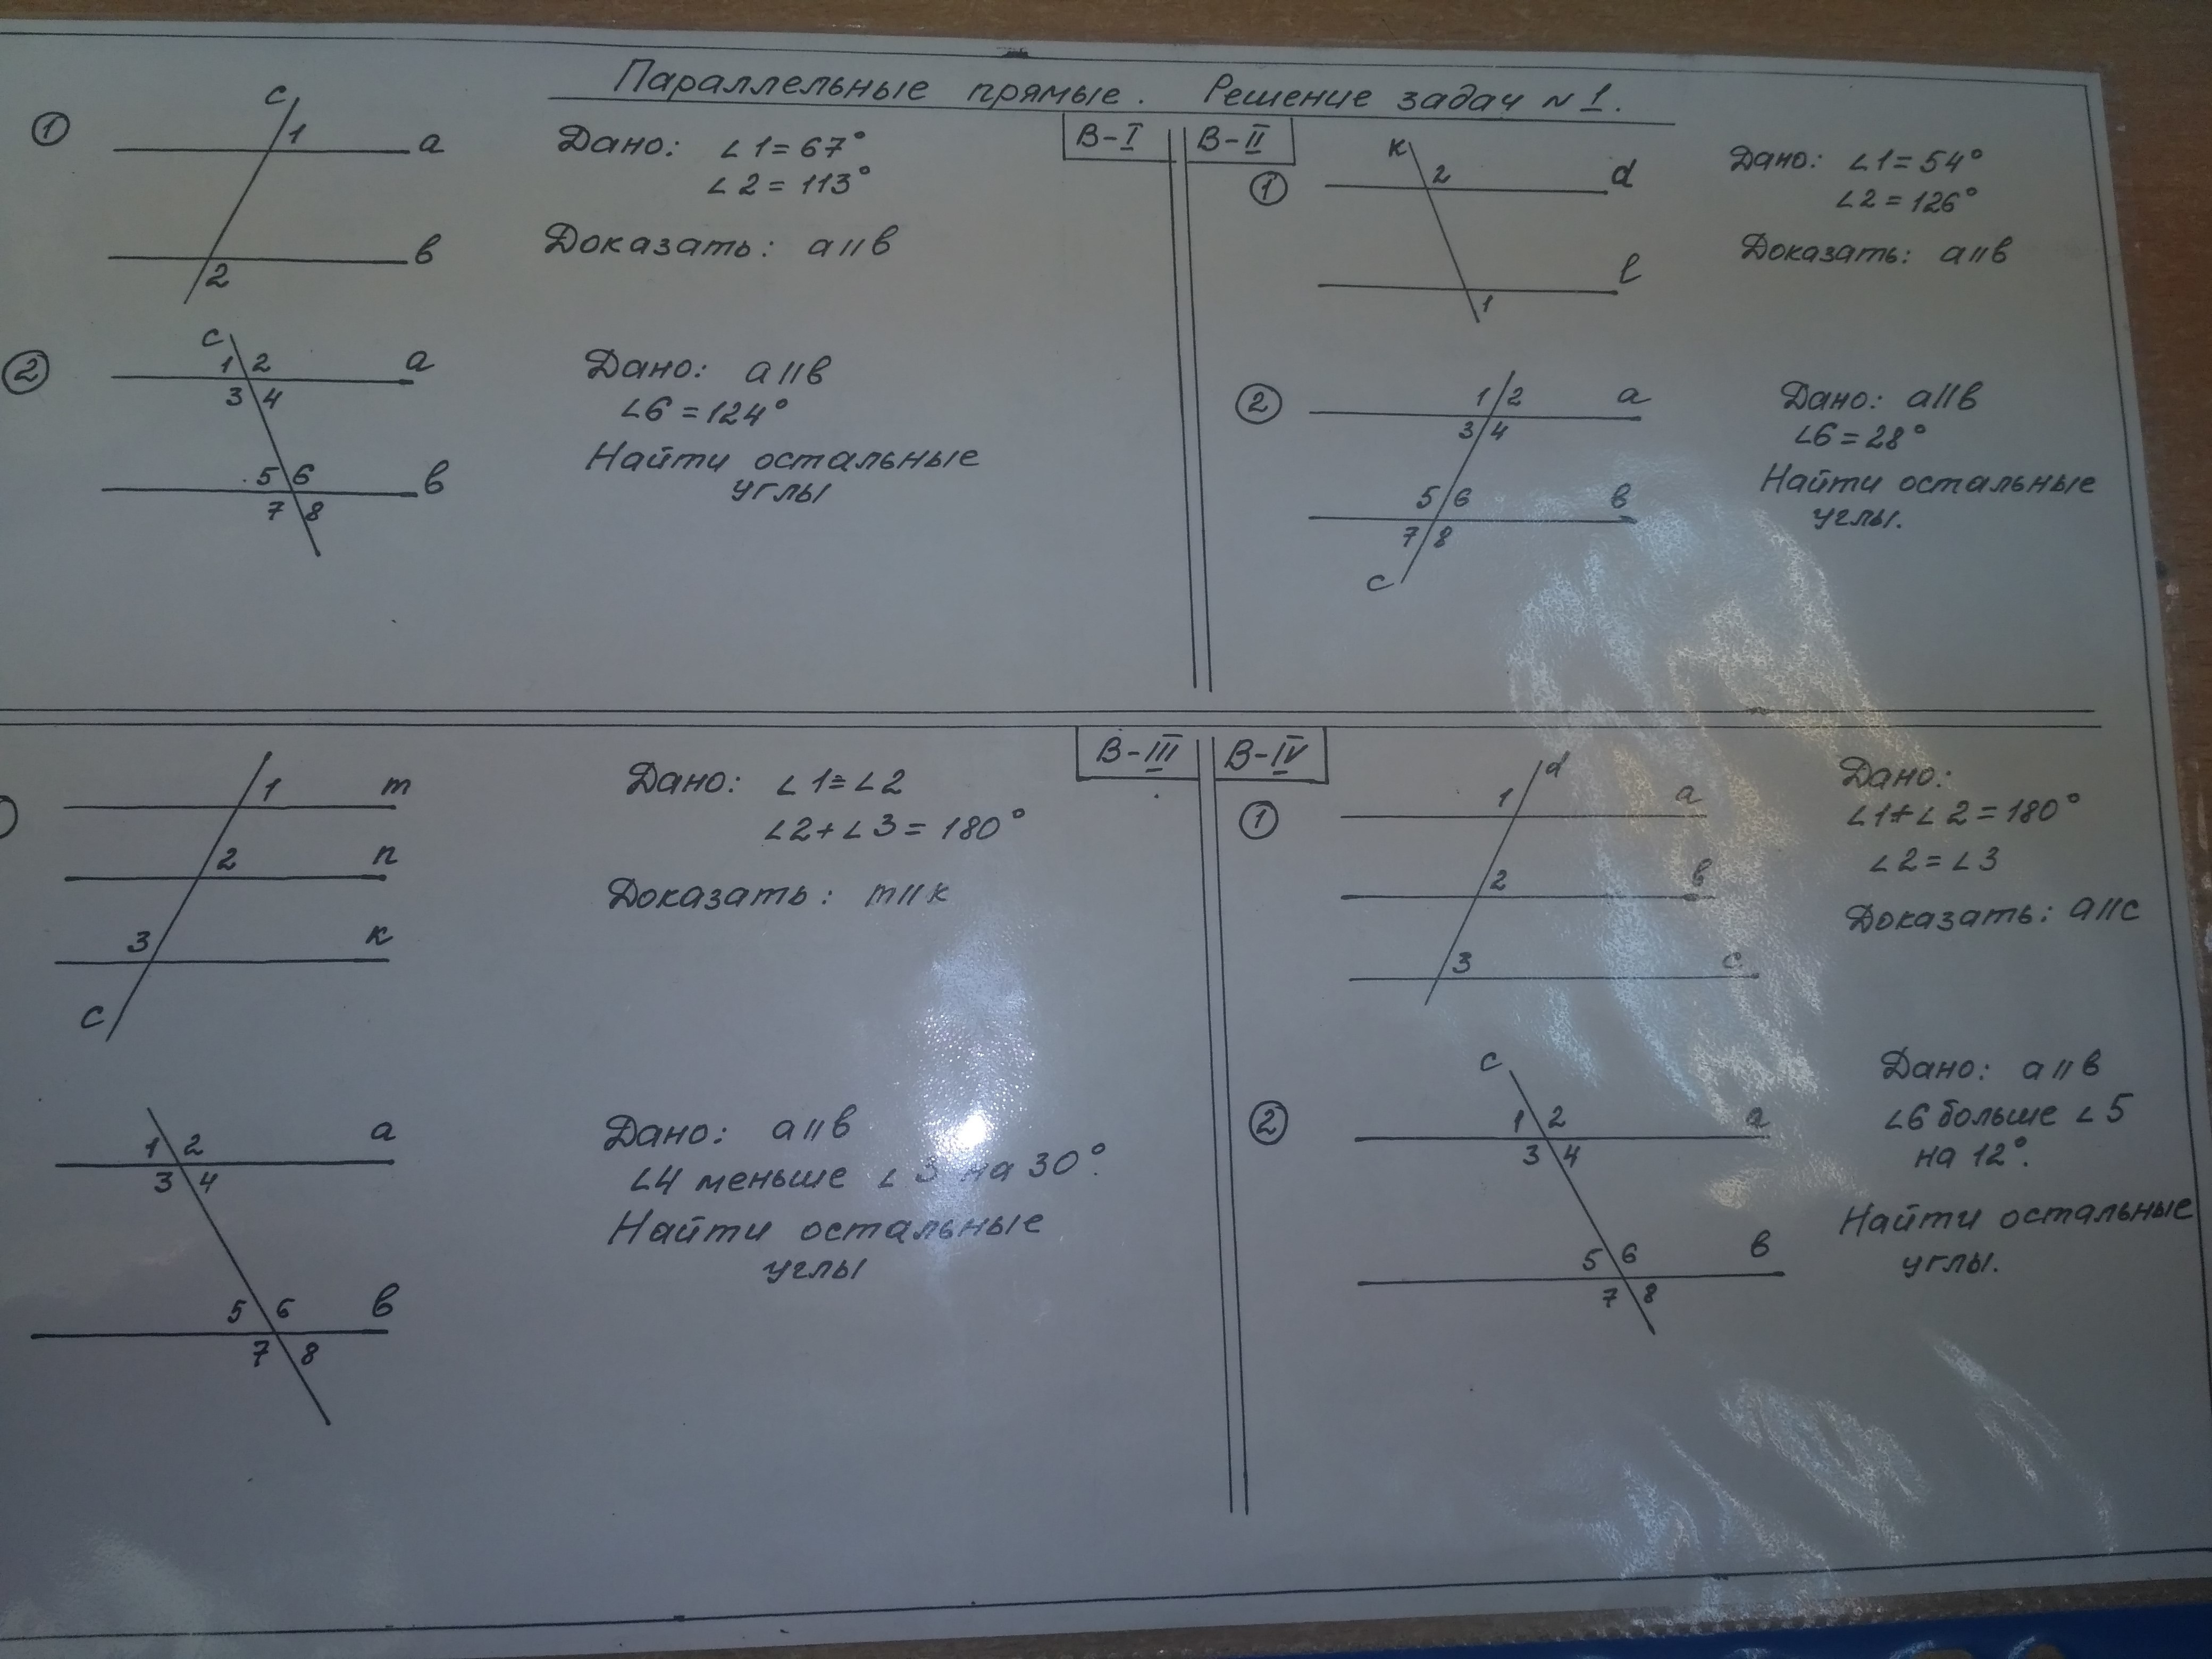 Параллельные прямые. Решение задач №1.
В-I
①
c
1
a
в
2
Дано: ∠1=67°
∠2=113°
Доказать: a∥в
②
c
1 2
a
3 4
5 6
в
7 8
Дано: a∥в
∠6=124°
Найти остальные
углы
В-II
①
к
2
d
l
1
Дано: ∠1=54°
∠2=126°
Доказать: a∥в
②
1 2
a
3 4
5 6
в
7 8
c
Дано: a∥в
∠6=28°
Найти остальные
углы.
В-III
1
m
2
n
3
к
c
Дано: ∠1=∠2
∠2+∠3=180°
Доказать: m∥к
1 2
a
3 4
5 6
в
7 8
Дано: a∥в
∠4 меньше ∠3 на 30°.
Найти остальные
углы
В-IV
①
d
1
a
2
в
3
c
Дано:
∠1+∠2=180°
∠2=∠3
Доказать: a∥c
②
c
1 2
a
3 4
5 6
в
7 8
Дано: a∥в
∠6 больше ∠5
на 12°.
Найти остальные
углы.